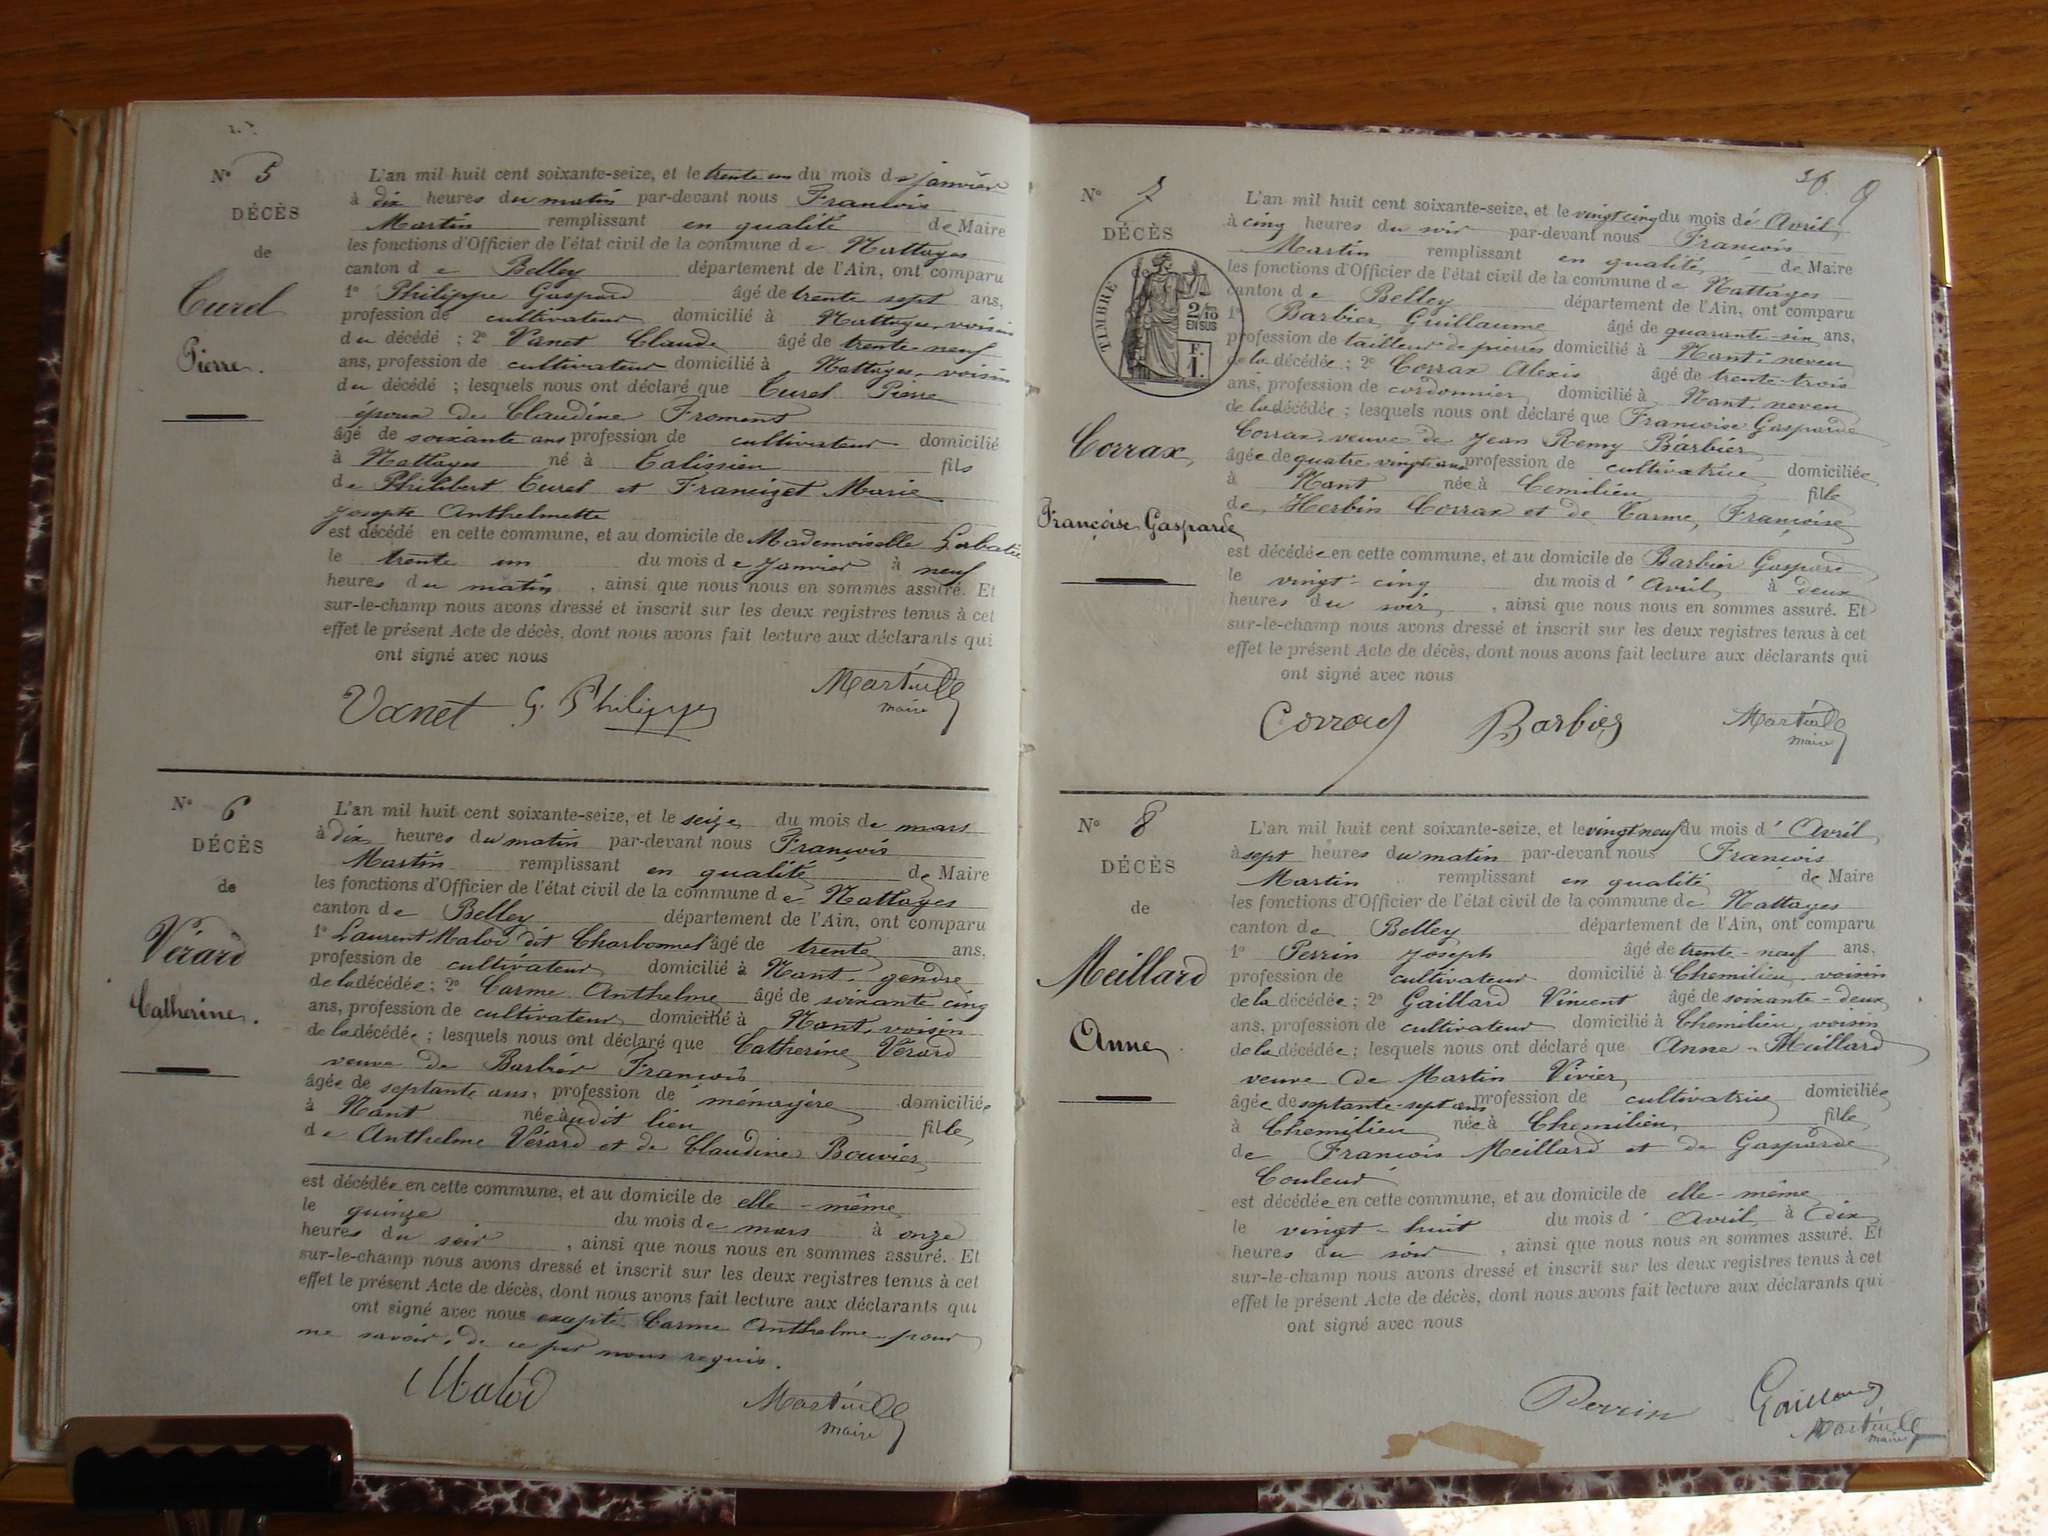 N° 5
DÉCÈS
de
Curel
Pierre.
L'an mil huit cent soixante-seize, et le trente un du mois de janvier
à dix heures du matin par-devant nous François
Martin remplissant en qualité de Maire
les fonctions d'Officier de l'état civil de la commune de Nattages
canton de Belley département de l'Ain, ont comparu
1° Philippe Gaspard âgé de trente sept ans,
profession de cultivateur domicilié à Nattages, voisin
du décédé ; 2° Vanet Claude âgé de trente-neuf
ans, profession de cultivateur domicilié à Nattages, voisin
du décédé ; lesquels nous ont déclaré que Curel Pierre
époux de Claudine Froment
âgé de soixante ans profession de cultivateur domicilié
à Nattages né à Talissieu fils
de Philibert Curel et Francizet Marie
Josepte Anthelmette
est décédé en cette commune, et au domicile de Mademoiselle
le trente un du mois de janvier à neuf
heures du matin, ainsi que nous nous en sommes assuré. Et
sur-le-champ nous avons dressé et inscrit sur les deux registres tenus à cet
effet le présent Acte de décès, dont nous avons fait lecture aux déclarants qui
ont signé avec nous
Vanet G. Philippe Martin
maire
N° 6
DÉCÈS
de
Vérard
Catherine.
L'an mil huit cent soixante-seize, et le seize du mois de mars
à dix heures du matin par-devant nous François
Martin remplissant en qualité de Maire
les fonctions d'Officier de l'état civil de la commune de Nattages
canton de Belley département de l'Ain, ont comparu
1° Laurent Malod dit Charbonnel âgé de trente ans,
profession de cultivateur domicilié à Nant, gendre
de la décédée ; 2° Carme Anthelme âgé de soixante cinq
ans, profession de cultivateur domicilié à Nant, voisin
de la décédée ; lesquels nous ont déclaré que Catherine Vérard
veuve de Barbier François
âgée de septante ans, profession de ménagère domiciliée
à Nant née audit lieu fille
de Anthelme Vérard et de Claudine Bouvier
est décédée en cette commune, et au domicile de elle-même
le quinze du mois de mars à onze
heures du soir, ainsi que nous nous en sommes assuré. Et
sur-le-champ nous avons dressé et inscrit sur les deux registres tenus à cet
effet le présent Acte de décès, dont nous avons fait lecture aux déclarants qui
ont signé avec nous excepté Carme Anthelme pour
ne savoir, de ce par nous requis.
Malod Martin
maire
36 9
N° 7
DÉCÈS
de
TIMBRE
2/10
EN SUS
F.
1.
Corrax
Françoise Gasparde
L'an mil huit cent soixante-seize, et le vingt cinq du mois d'Avril
à cinq heures du soir par-devant nous François
Martin remplissant en qualité de Maire
les fonctions d'Officier de l'état civil de la commune de Nattages
canton de Belley département de l'Ain, ont comparu
1° Barbier Guillaume âgé de quarante-six ans,
profession de tailleur de pierres domicilié à Nant, neveu
de la décédée ; 2° Corrax Alexis âgé de trente-trois
ans, profession de cordonnier domicilié à Nant, neveu
de la décédée ; lesquels nous ont déclaré que Françoise Gasparde
Corrax, veuve de Jean Remy Barbier
âgée de quatre vingt ans profession de cultivatrice domiciliée
à Nant née à Cemilieu fille
de Herbin Corrax et de Carme, Françoise
est décédée en cette commune, et au domicile de Barbier Gaspard
le vingt-cinq du mois d'Avril à deux
heures du soir, ainsi que nous nous en sommes assuré. Et
sur-le-champ nous avons dressé et inscrit sur les deux registres tenus à cet
effet le présent Acte de décès, dont nous avons fait lecture aux déclarants qui
ont signé avec nous
Barbier Martin
maire
N° 8
DÉCÈS
de
Meillard
Anne
L'an mil huit cent soixante-seize, et le vingt neuf du mois d'Avril
à sept heures du matin par-devant nous François
Martin remplissant en qualité de Maire
les fonctions d'Officier de l'état civil de la commune de Nattages
canton de Belley département de l'Ain, ont comparu
1° Perrin Joseph âgé de trente-neuf ans,
profession de cultivateur domicilié à Chemilieu, voisin
de la décédée ; 2° Gaillard Vincent âgé de soixante-deux
ans, profession de cultivateur domicilié à Chemilieu, voisin
de la décédée ; lesquels nous ont déclaré que Anne Meillard
veuve de Martin Vivier
âgée de septante-sept ans profession de cultivatrice domiciliée
à Chemilieu née à Chemilieu fille
de François Meillard et de Gasparde
Couleur
est décédée en cette commune, et au domicile de elle-même
le vingt-huit du mois d'Avril à dix
heures du soir, ainsi que nous nous en sommes assuré. Et
sur-le-champ nous avons dressé et inscrit sur les deux registres tenus à cet
effet le présent Acte de décès, dont nous avons fait lecture aux déclarants qui
ont signé avec nous
Perrin Gaillard
Martin
maire